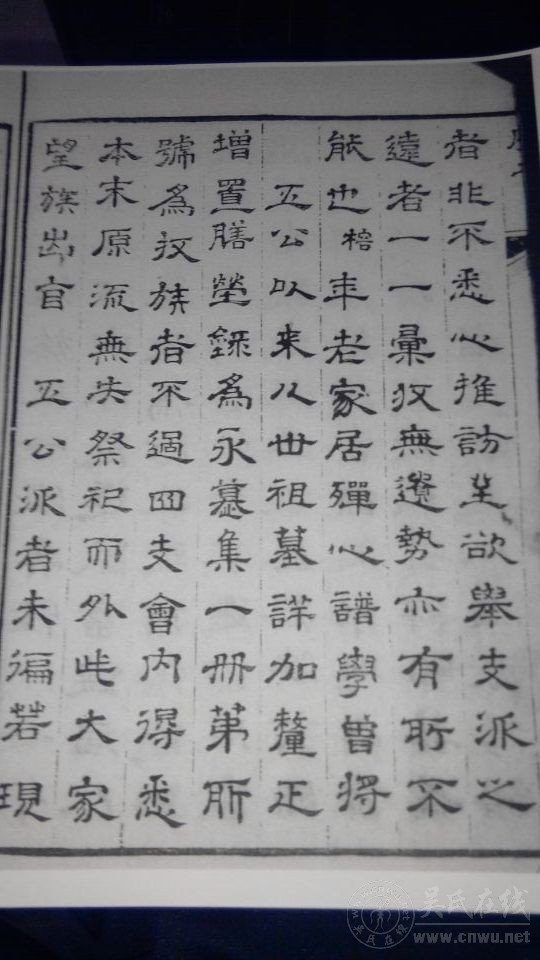 者非不悉心推訪並欲舉支派之
遠者一一彙收無遺勢亦有所不
能也榕年老家居殫心譜學曾將
五公以来八世祖墓詳加釐正
增置膳塋錄爲永墓集一册第所
號爲收族者不過四支會內得悉
本末原流無失祭祀而外此大家
望族出自 五公派者未徧若現
吴氏在线
www.cnwu.net